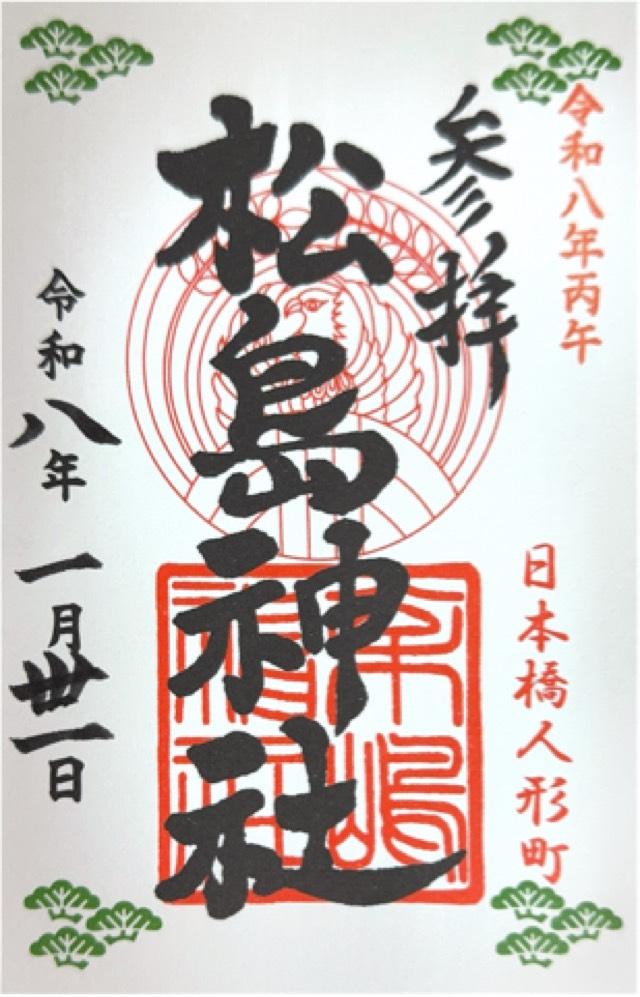 令和八年丙午
日本橋人形町
参拝
松島神社
令和八年 一月卅一日